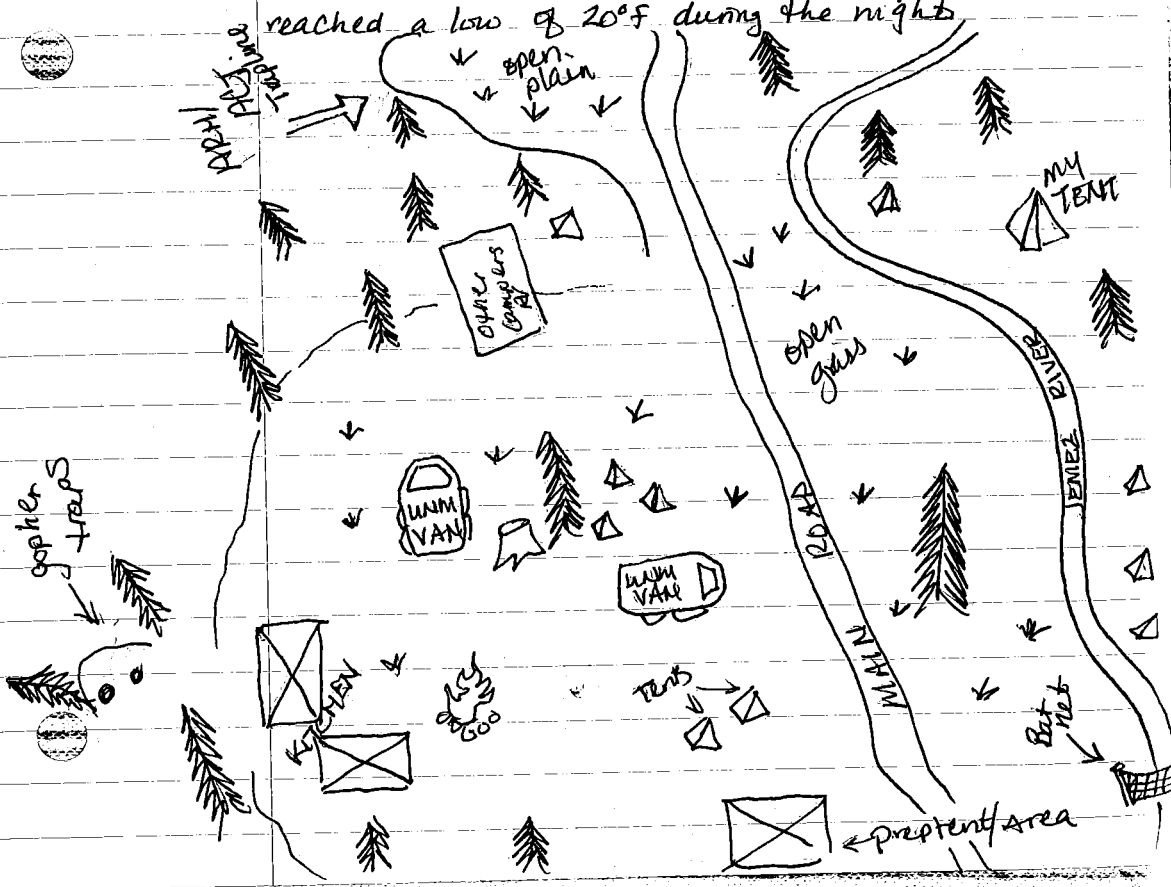 reached a low of 20°F during the night
open
plain
ARH1
trapline
MY
TENT
Other
Campers
RV
open
grass
JEMEZ RIVER
gopher
traps
UNM
VAN
UNM
VAN
MAIN ROAD
KITCHEN
Tents
Bat
net
Preptent/Area